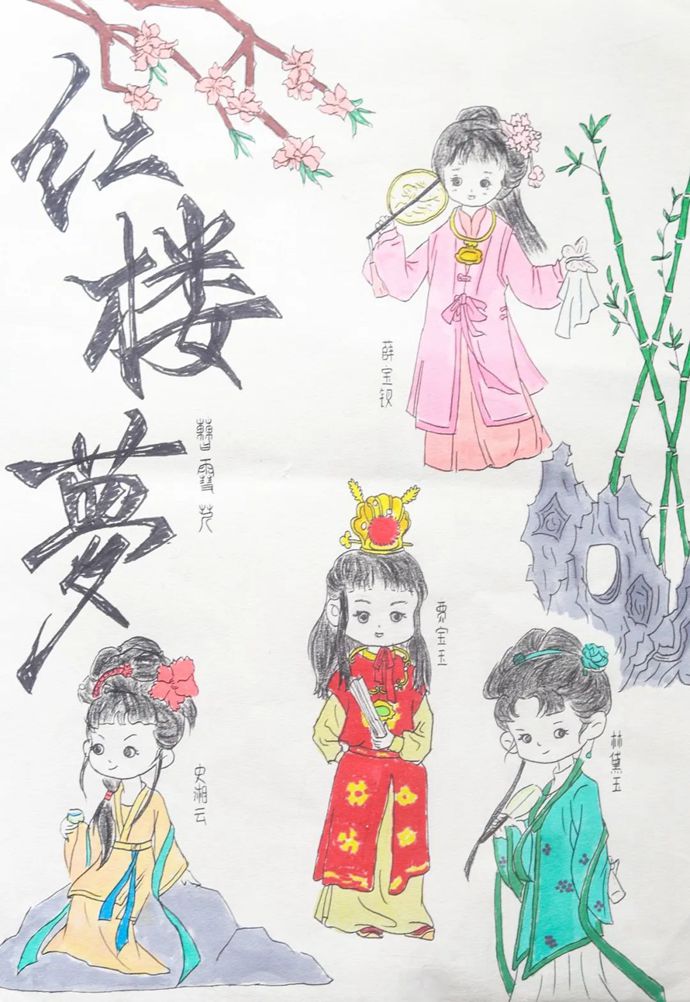 红楼梦
曹雪芹
薛宝钗
贾宝玉
林黛玉
史湘云